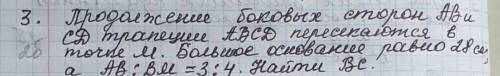 3. Продолжение боковых сторон АВ и
CD трапеции ABCD пересекаются в
точке М. Большое основание равно 28 см,
а AB:BM = 3:4. Найти ВС.